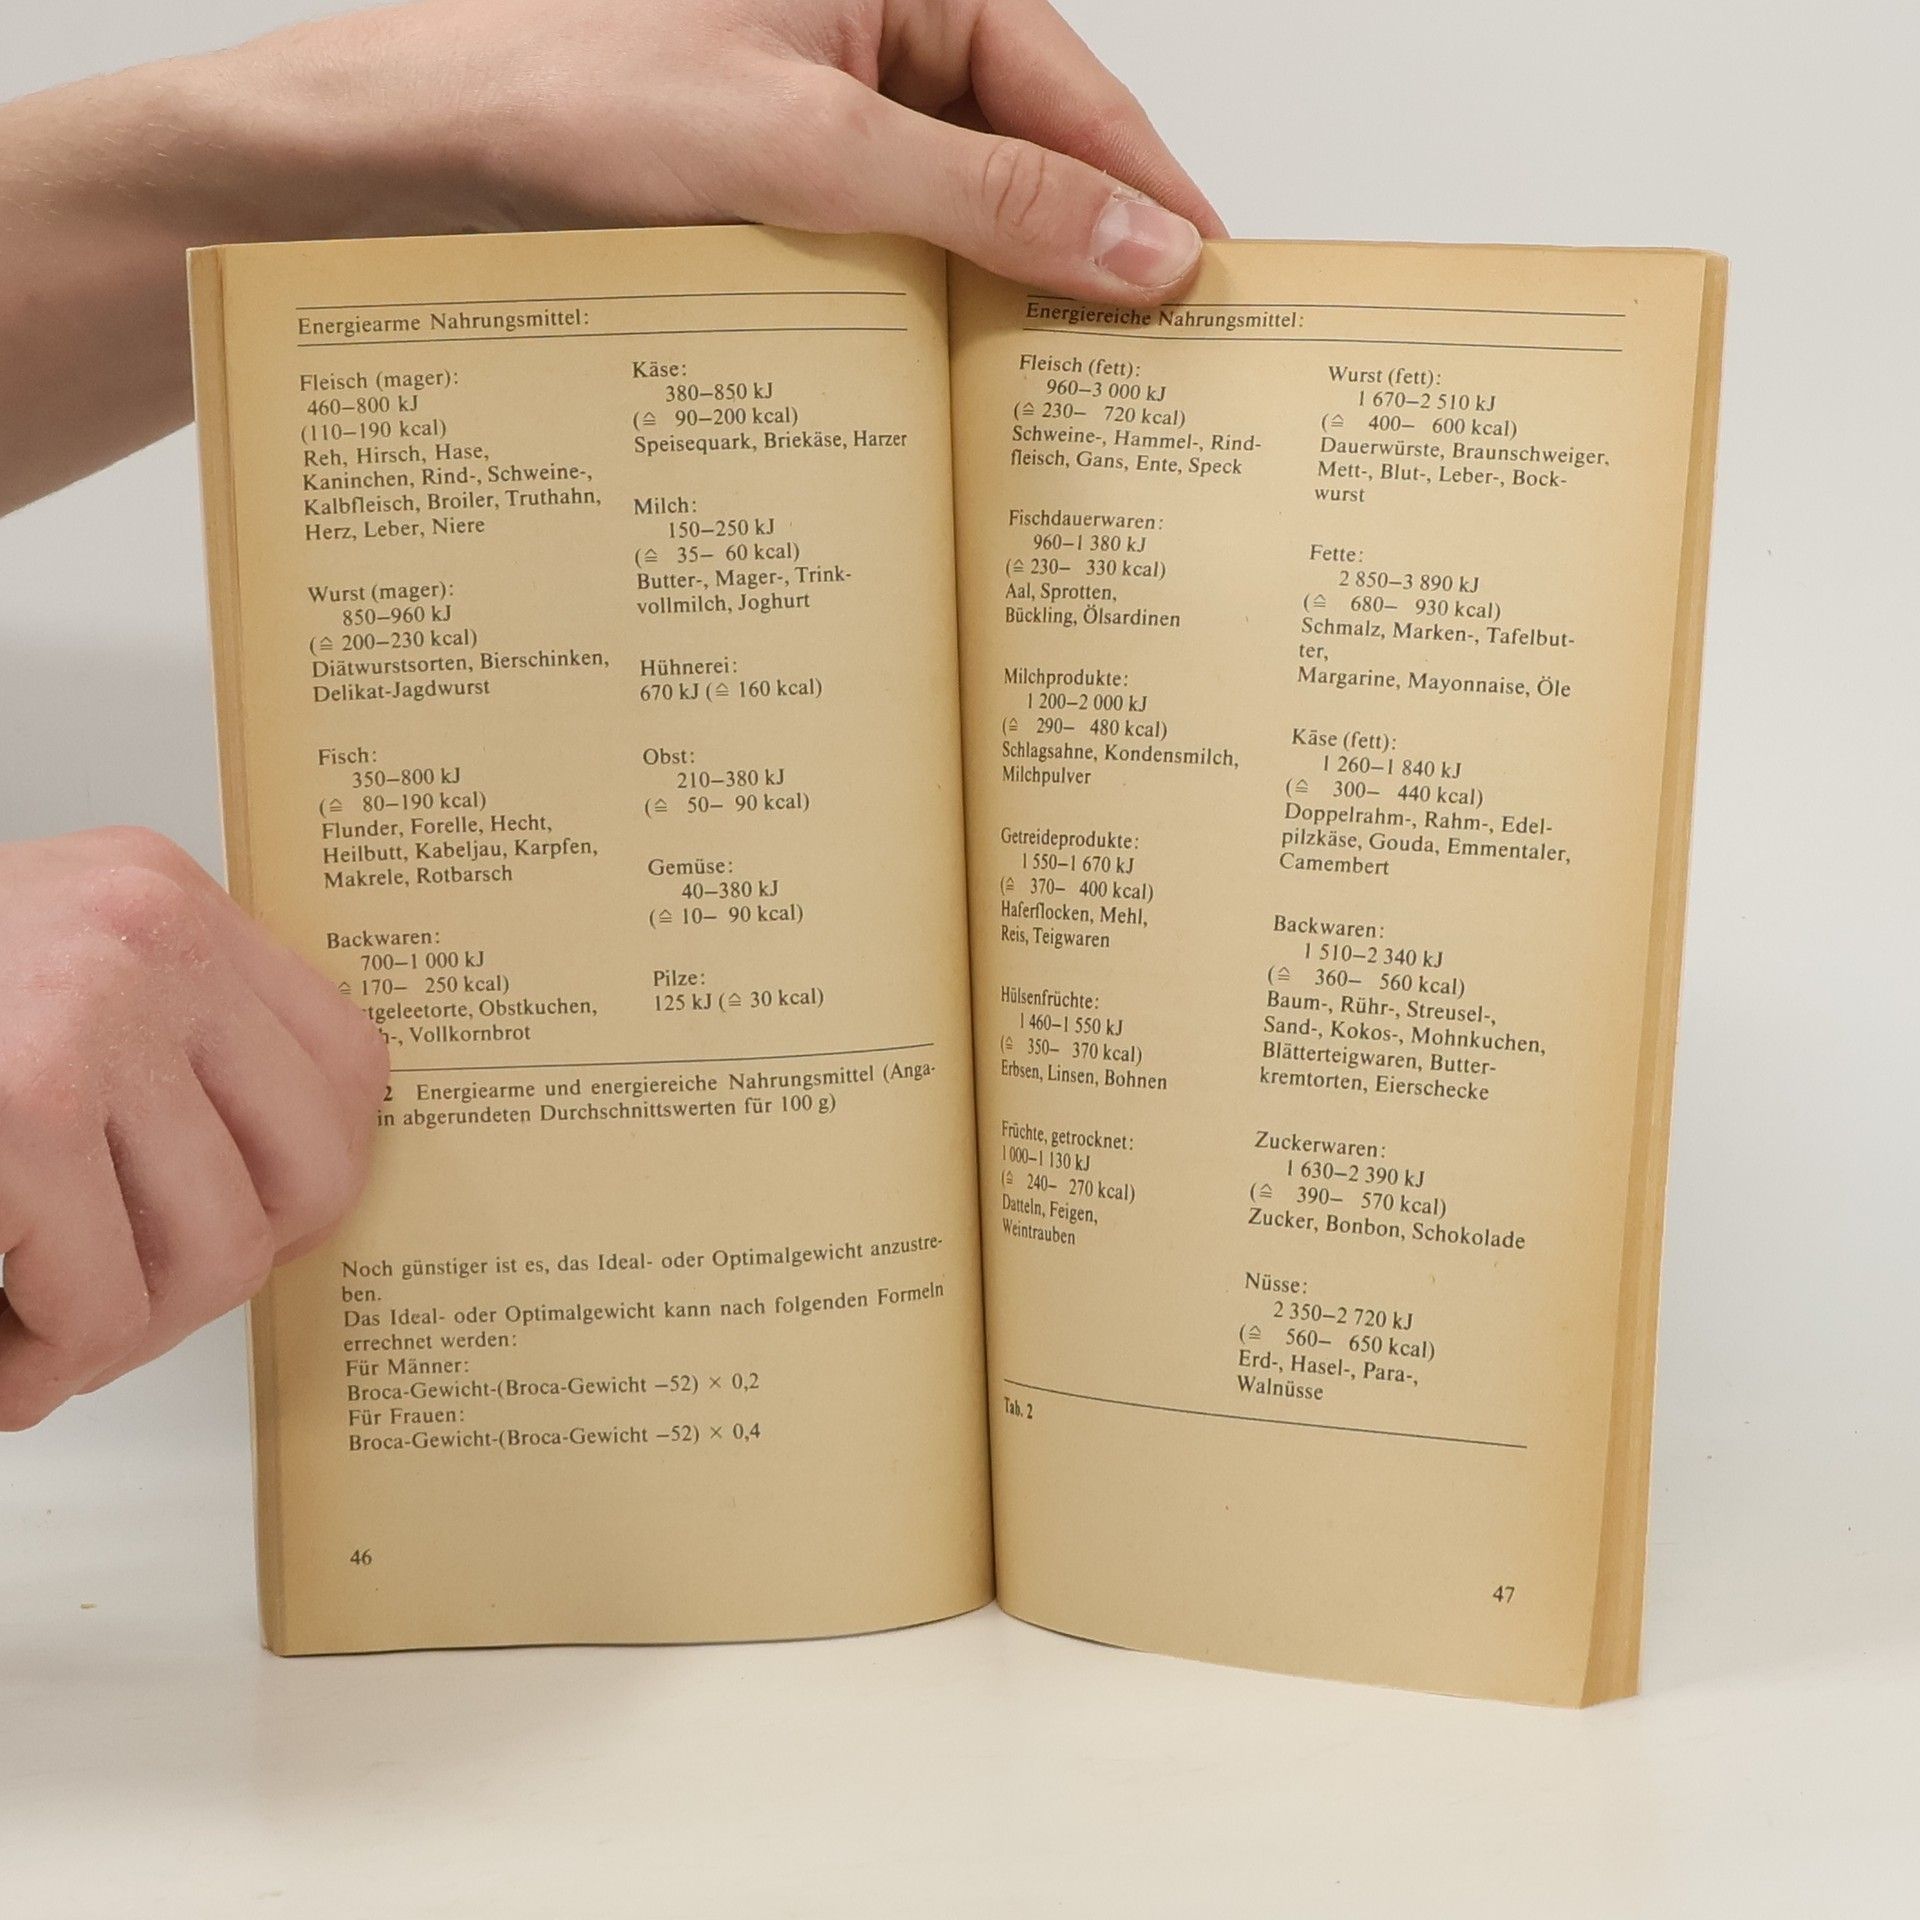 Energiearme Nahrungsmittel:
Fleisch (mager):
460–800 kJ
(110–190 kcal)
Reh, Hirsch, Hase,
Kaninchen, Rind-, Schweine-,
Kalbfleisch, Broiler, Truthahn,
Herz, Leber, Niere
Wurst (mager):
850–960 kJ
(≙ 200–230 kcal)
Diätwurstsorten, Bierschinken,
Delikat-Jagdwurst
Fisch:
350–800 kJ
(≙ 80–190 kcal)
Flunder, Forelle, Hecht,
Heilbutt, Kabeljau, Karpfen,
Makrele, Rotbarsch
Backwaren:
700–1 000 kJ
≙ 170– 250 kcal)
Obstkuchen,
Vollkornbrot
Käse:
380–850 kJ
(≙ 90–200 kcal)
Speisequark, Briekäse, Harzer
Milch:
150–250 kJ
(≙ 35– 60 kcal)
Butter-, Mager-, Trink-
vollmilch, Joghurt
Hühnerei:
670 kJ (≙ 160 kcal)
Obst:
210–380 kJ
(≙ 50– 90 kcal)
Gemüse:
40–380 kJ
(≙ 10– 90 kcal)
Pilze:
125 kJ (≙ 30 kcal)
2 Energiearme und energiereiche Nahrungsmittel (Anga-
in abgerundeten Durchschnittswerten für 100 g)
Noch günstiger ist es, das Ideal- oder Optimalgewicht anzustre-
ben.
Das Ideal- oder Optimalgewicht kann nach folgenden Formeln
errechnet werden:
Für Männer:
Broca-Gewicht-(Broca-Gewicht –52) × 0,2
Für Frauen:
Broca-Gewicht-(Broca-Gewicht –52) × 0,4
46
Energiereiche Nahrungsmittel:
Fleisch (fett):
960–3 000 kJ
(≙ 230– 720 kcal)
Schweine-, Hammel-, Rind-
fleisch, Gans, Ente, Speck
Fischdauerwaren:
960–1 380 kJ
(≙ 230– 330 kcal)
Aal, Sprotten,
Bückling, Ölsardinen
Milchprodukte:
1 200–2 000 kJ
(≙ 290– 480 kcal)
Schlagsahne, Kondensmilch,
Milchpulver
Getreideprodukte:
1 550–1 670 kJ
(≙ 370– 400 kcal)
Haferflocken, Mehl,
Reis, Teigwaren
Hülsenfrüchte:
1 460–1 550 kJ
(≙ 350– 370 kcal)
Erbsen, Linsen, Bohnen
Früchte, getrocknet:
1 000–1 130 kJ
(≙ 240– 270 kcal)
Datteln, Feigen,
Weintrauben
Wurst (fett):
1 670–2 510 kJ
(≙ 400– 600 kcal)
Dauerwürste, Braunschweiger,
Mett-, Blut-, Leber-, Bock-
wurst
Fette:
2 850–3 890 kJ
(≙ 680– 930 kcal)
Schmalz, Marken-, Tafelbut-
ter,
Margarine, Mayonnaise, Öle
Käse (fett):
1 260–1 840 kJ
(≙ 300– 440 kcal)
Doppelrahm-, Rahm-, Edel-
pilzkäse, Gouda, Emmentaler,
Camembert
Backwaren:
1 510–2 340 kJ
(≙ 360– 560 kcal)
Baum-, Rühr-, Streusel-,
Sand-, Kokos-, Mohnkuchen,
Blätterteigwaren, Butter-
kremtorten, Eierschecke
Zuckerwaren:
1 630–2 390 kJ
(≙ 390– 570 kcal)
Zucker, Bonbon, Schokolade
Nüsse:
2 350–2 720 kJ
(≙ 560– 650 kcal)
Erd-, Hasel-, Para-,
Walnüsse
Tab. 2
47